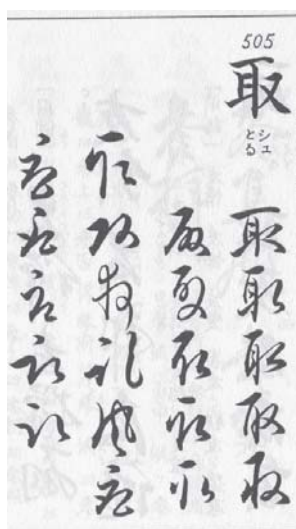 505
取
シュ
とる
取取取取取
取取取取取
取取取取取取
取取取取取